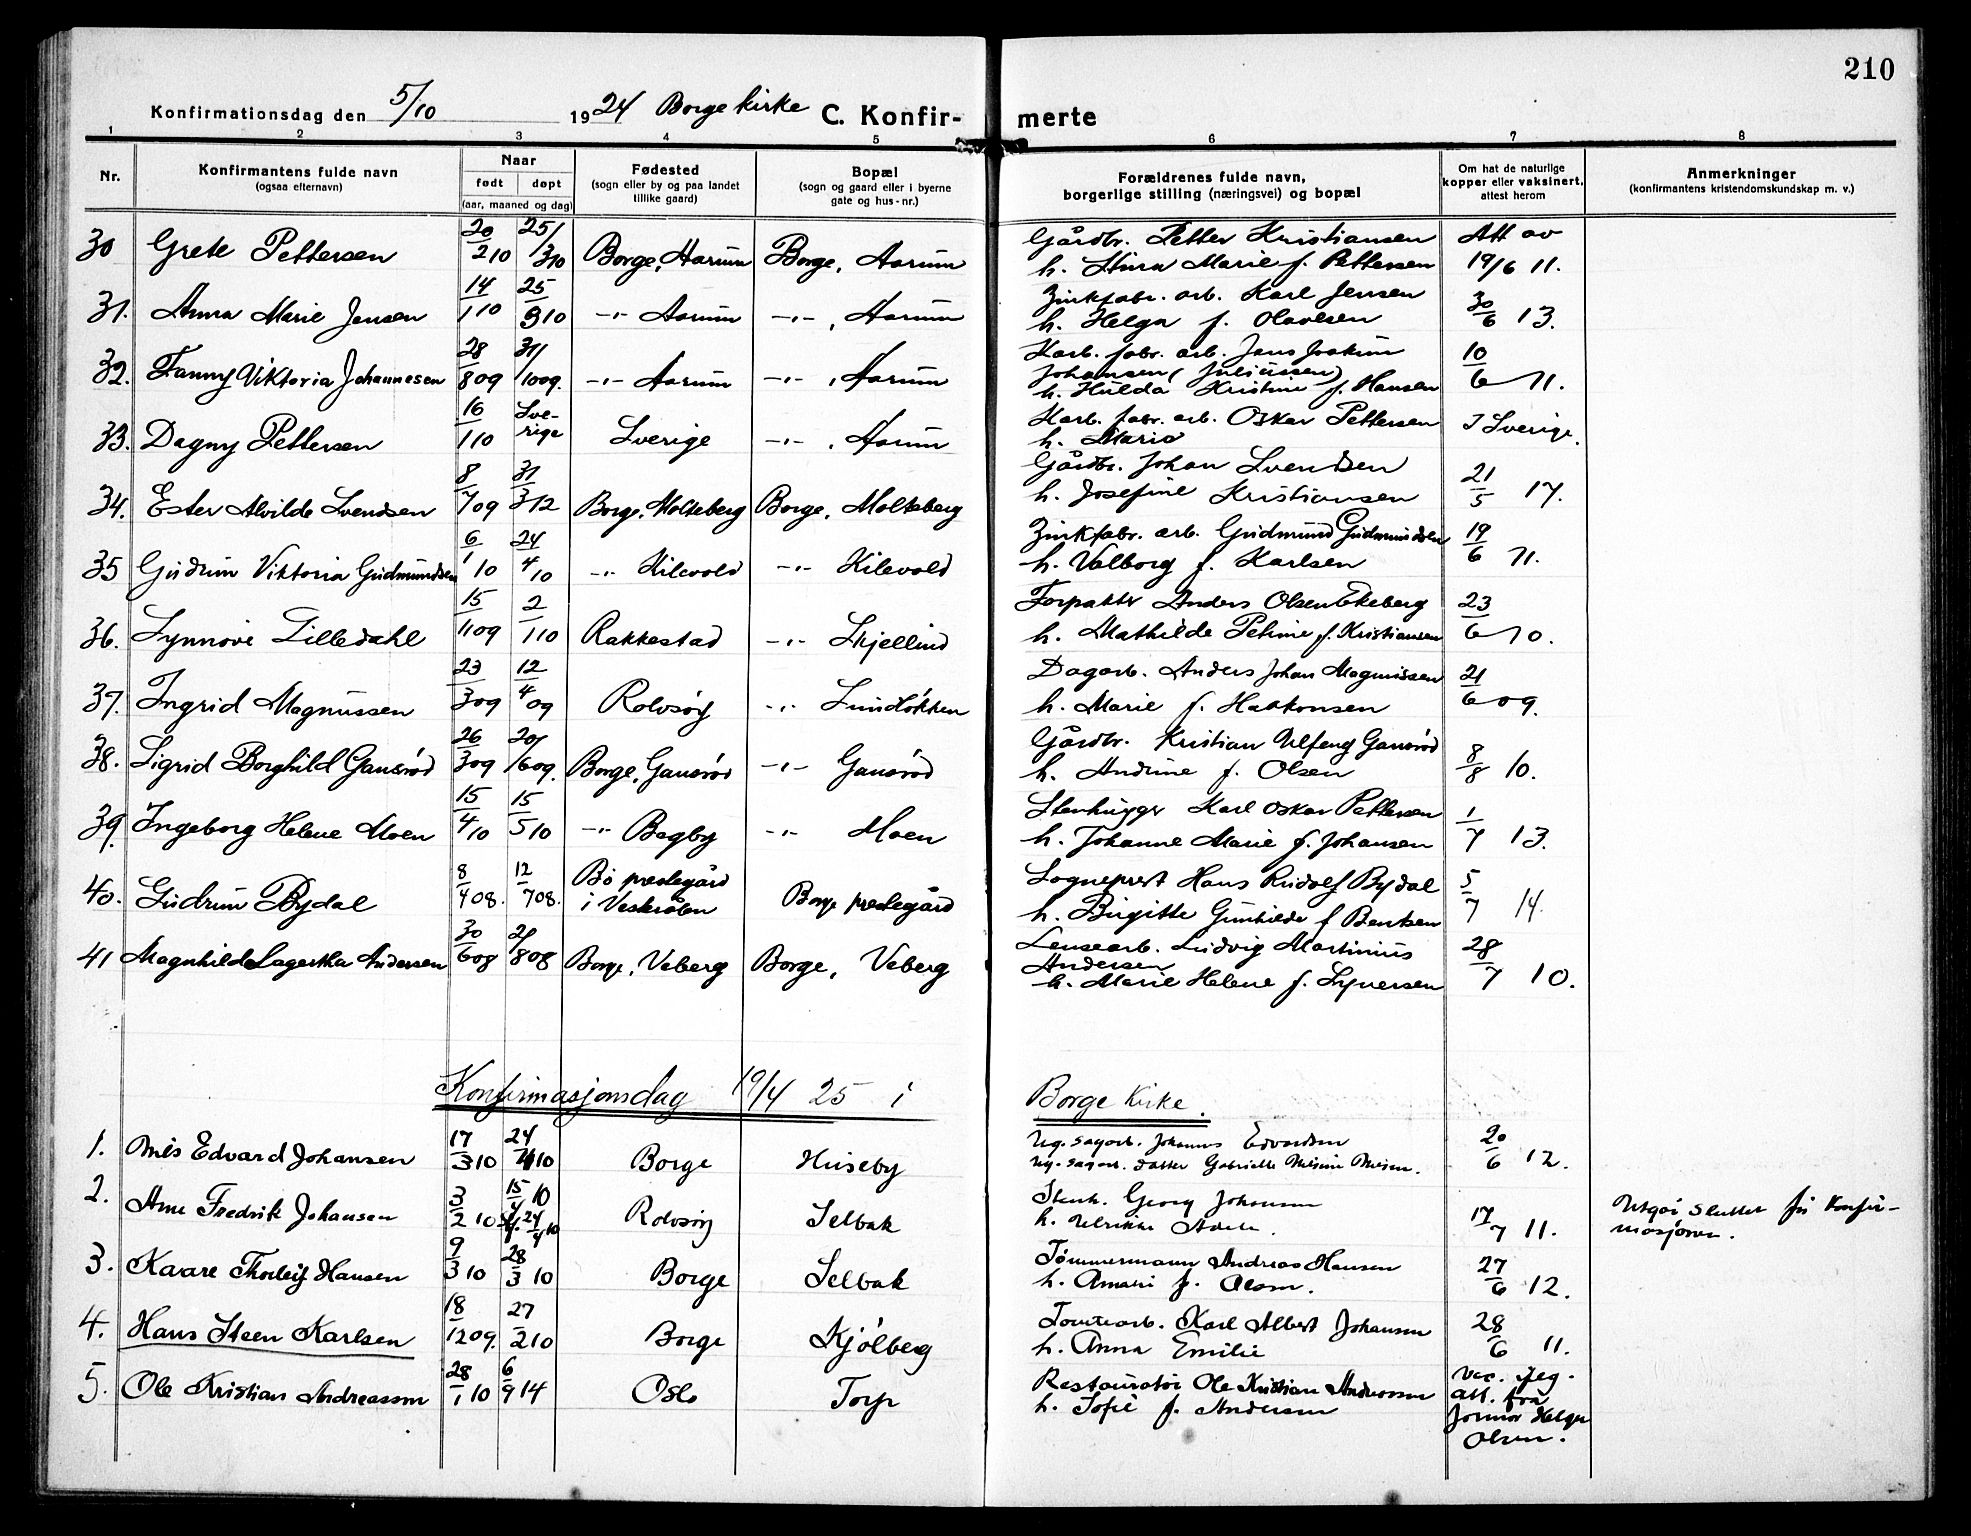 210
Konfirmationsdag den 5/10 1924 Borge kirke C. Konfir- merte
1 2 3 4 5 6 7 8
Nr. Konfirmantens fulde navn (ogsaa efternavn) Naar født døpt (aar, maaned og dag) Fødested (sogn eller by og paa landet tillike gaard) Bopæl (sogn og gaard eller i byerne gate og hus-nr.) Forældrenes fulde navn, borgerlige stilling (næringsvei) og bopæl Om hat de naturlige kopper eller vaksinert, attest herom Anmerkninger (konfirmantens kristendomskundskap m. v.)
30 Grete Pettersen 20/2 10 25/3 10 Borge, Aarum Borge, Aarum Gårdbr. Petter Kristiansen Att av
h. Marie f. Pettersen 19/6 11.
31. Anna Marie Jensen 14/1 10 25/3 10 -"- Aarum -"-, Aarum Zinkfabr. arb. Karl Jensen
h. Helga f. Olavesen 30/6 13.
32. Fanny Viktoria Johannesen 28/8 09 31/10 09. -"- Aarum -"-, Aarum Karb. fabr. arb. Jens Joakim
Johansen (Juliussen)
h. Hulda Kristine f. Hansen 10/6 11.
33. Dagny Pettersen 16/1 10 Sverige Sverige -"-, Aarum Karb. fabr. arb. Oskar Pettersen I Sverige.
h. Maria
34. Ester Alvilde Svendsen 8/7 09 31/3 12 Borge, Molteberg Borge, Molteberg Gårdbr. Johan Svendsen
h. Josefine Kristiansen 21/5 17.
35 Gudrun Viktoria Gudmundsen 6/1 10 24/4 10 -"- Kilevold -"- Kilevold Zinkfabr. arb. Gudmund Gudmundsen
h. Valborg f. Karlsen 19/6 11.
36. Synnøve Lilledahl 15/11 09 2/1 10 Rakkestad -"- Skjellin Forpakter Anders Olsen Ekeberg
h. Mathilde Petrine f. Kristiansen 23/6 10.
37. Ingrid Magnussen 23/3 09 12/4 09 Rolvsøy -"- Lundløkken Dagarb. Anders Johan Magnussen
h. Marie f. Haakonsen 21/6 09.
38. Sigrid Borghild Gansrød 26/3 09 20/6 09. Borge, Gansrød -"- Gansrød Gårdbr. Kristian Gansrød
h. Andrine f. Olsen 8/8 10.
39. Ingeborg Helene Moen 15/4 10 15/5 10 -"- Begby -"- Moen Stenhugger Karl Oskar Pettersen
h. Johanne Marie f. Johansen 1/7 13.
40. Gudrun Bydal 8/4 08. 12/7 08. Bø prestegård i Vesterålen Borge prestegård Sogneprest Hans Rudolf Bydal
h. Birgitte Gunhilde f Bentsen 5/7 14.
41 Magnhilde Lagertha Andersen 30/6 08 2/8 08 Borge, Veberg Borge, Veberg Lensearb. Ludvig Martinius
Andersen
h. Marie Helene f. Syversen 28/7 10.
Konfirmasjonsdag 19/4 25 i Borge Kirke.
1. Nils Edvard Johansen 17/3 10 24/4 10 Borge Huseby Ug. sagarb. Johannes Edvardsen
Ug. sagarb. datter Gabrielle Nilsine Nilsen. 20/6 12.
2. Arne Fredrik Johansen 3/2 10 15/4 10 24/4 10 Rolvsøy Selbak Stenh. Georg Johansen
h. Ulrikke 17/7 11. Utgår sluttet før Konfir-
masjonen.
3. Kaare Thorleif Hansen 9/3 10 28/3 10 Borge Selbak Tømmermann Andreas Hansen
h. Amari f. Olsen. 27/6 12.
4. Hans Steen Karlsen 18/12 09. 27/2 10 Borge Kjølberg Tomtearb. Karl Albert Johansen
h. Anna Emilie 28/6 11.
5. Ole Kristian Andreassen 28/1 10 6/9 14 Oslo Torp Restauratør Ole Kristian Andreassen
h. Sofie f. Andersen Vac. iflg.
att. fra
jormor Helga
Olsen.